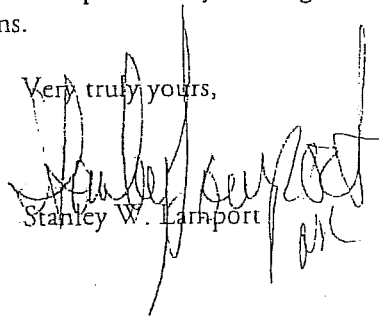 ns.
Very truly yours,
Stanley Lamport
Stanley W. Lamport